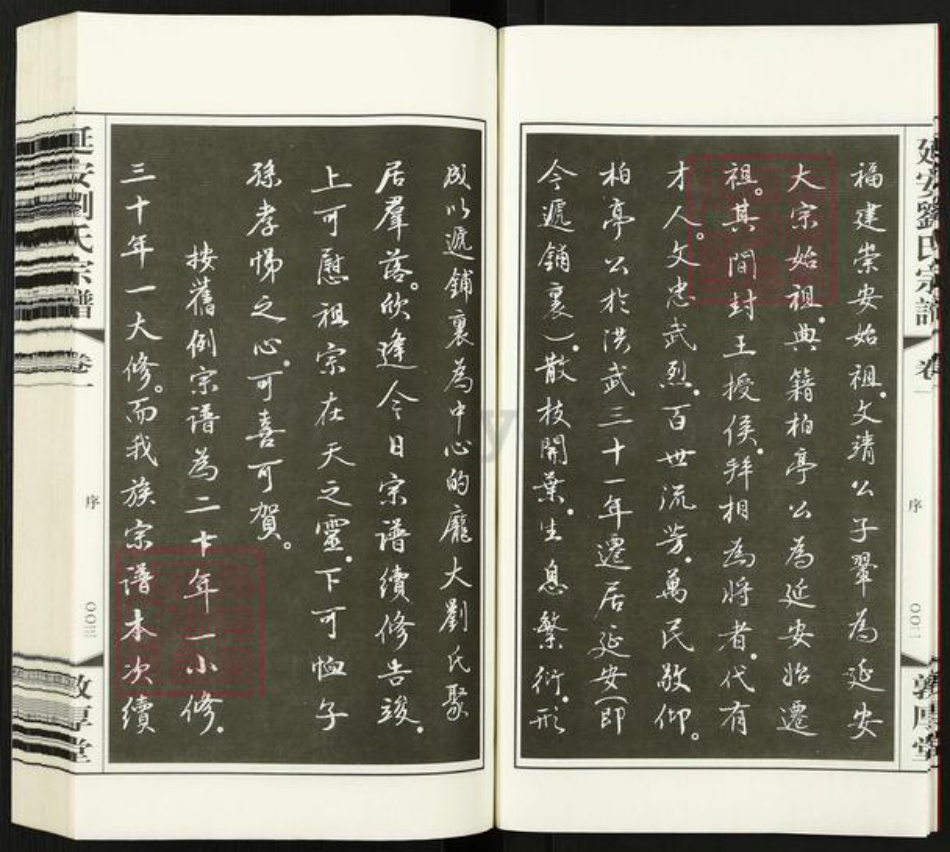 福建崇安始祖.文靖公子翬為延安
大宗始祖.典籍柏亭公為延安始遷
祖。其間封王授侯.拜相為將者.代有
才人。文忠武烈.百世流芳.萬民敬仰。
柏亭公於洪武三十一年遷居延安(即
今遞鋪裏).散枝開葉.生息繁衍.形
延安劉氏宗譜
卷一
序
〇〇二
敦厚堂
成以遞鋪裏為中心的龐大劉氏聚
居羣落。欣逢今日宗譜續修告竣.
上可慰祖宗在天之靈.下可恤子
孫孝悌之心.可喜可賀。
按舊例宗譜為二十年一小修.
三十年一大修。而我族宗譜本次續
延安劉氏宗譜
卷一
序
〇〇三
敦厚堂